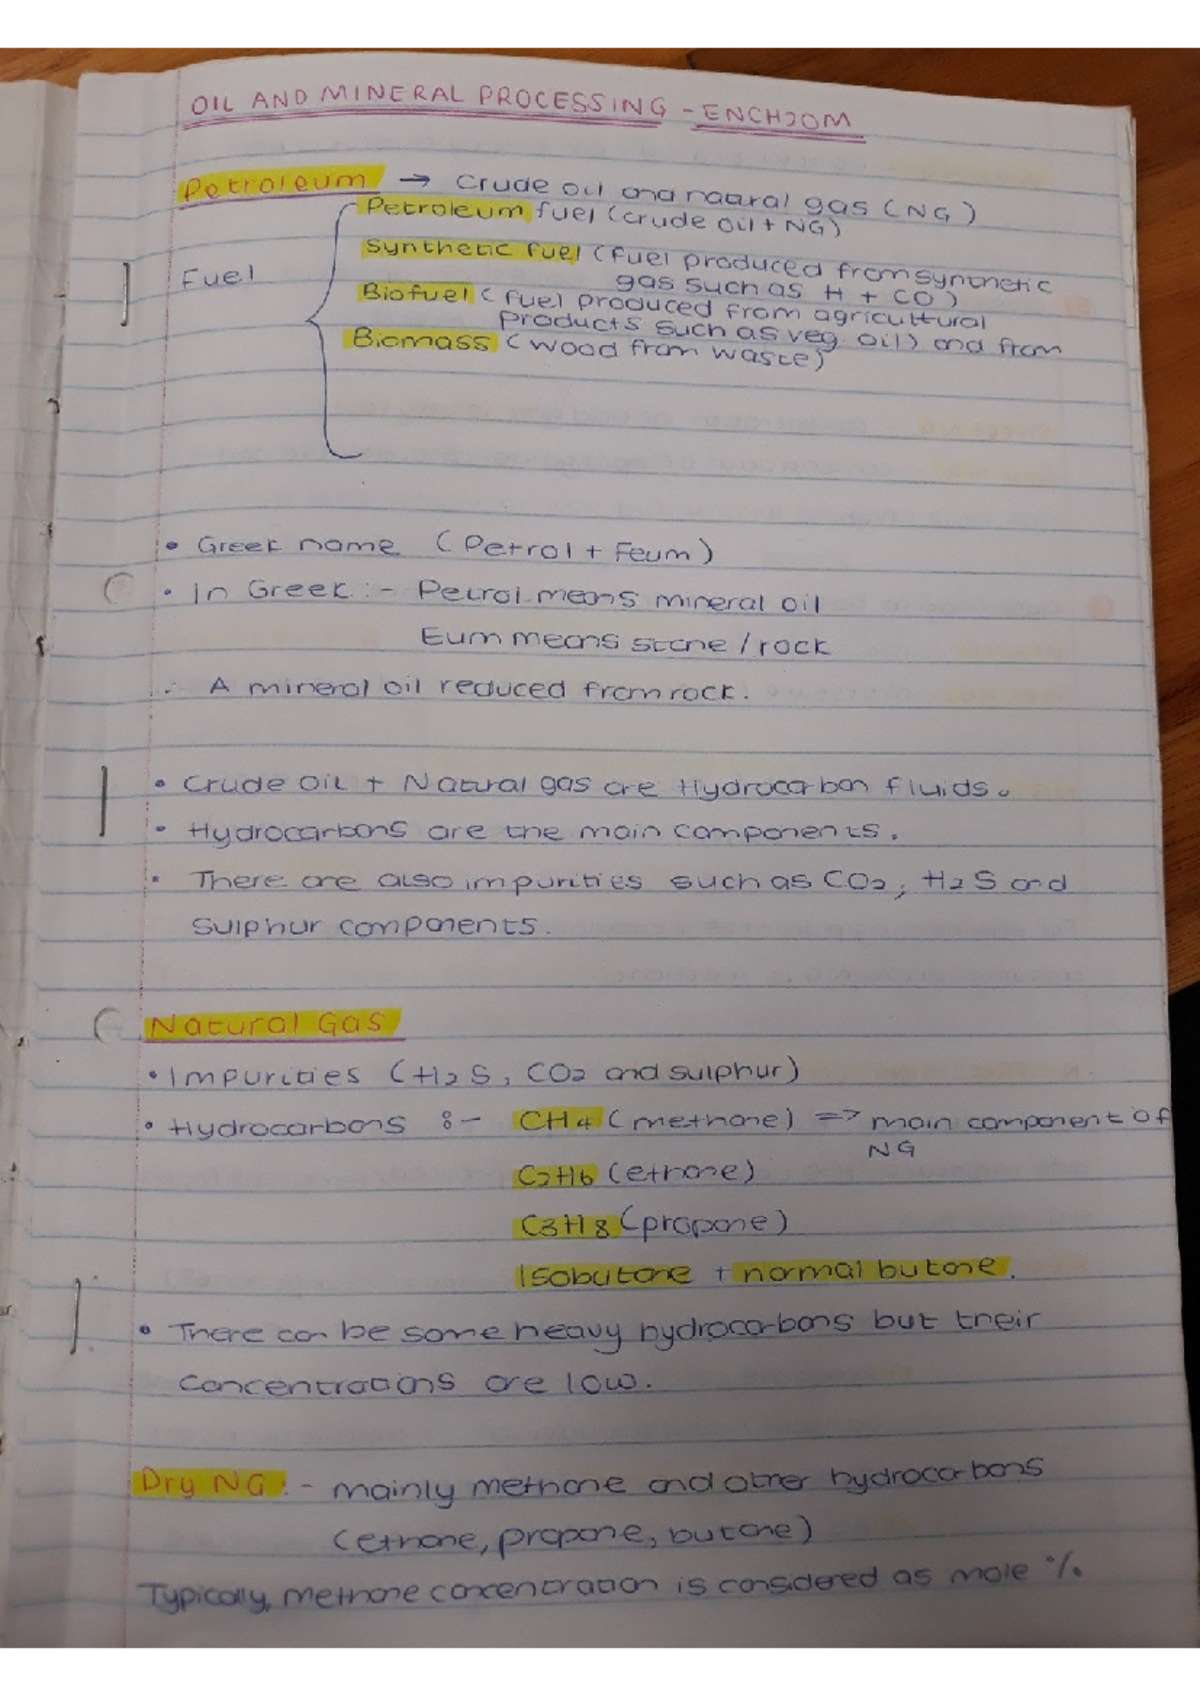 OIL AND MINERAL PROCESSING - ENCH2OM
Petroleum → Crude oil and natural gas (NG)
Petroleum fuel (crude oil + NG)
Synthetic fuel (fuel produced from synthetic
Fuel
gas such as H + CO)
Biofuel (fuel produced from agricultural
products such as veg. oil) and from
Biomass (wood from waste)
• Greek name (Petrol + Feum)
• In Greek :- Petrol means mineral oil
Eum means stone / rock
∴ A mineral oil reduced from rock.
• Crude Oil + Natural gas are Hydrocarbon fluids.
• Hydrocarbons are the main components.
• There are also impurities such as CO2, H2S and
Sulphur components.
Natural Gas
• Impurities (H2S, CO2 and sulphur)
• Hydrocarbons :- CH4 (methane) => main component of
NG
C2H6 (ethane)
C3H8 (propane)
Isobutane + normal butane.
• There can be some heavy hydrocarbons but their
concentrations are low.
Dry NG :- mainly methane and other hydrocarbons
(ethane, propane, butane)
Typically, methane concentration is considered as mole %.